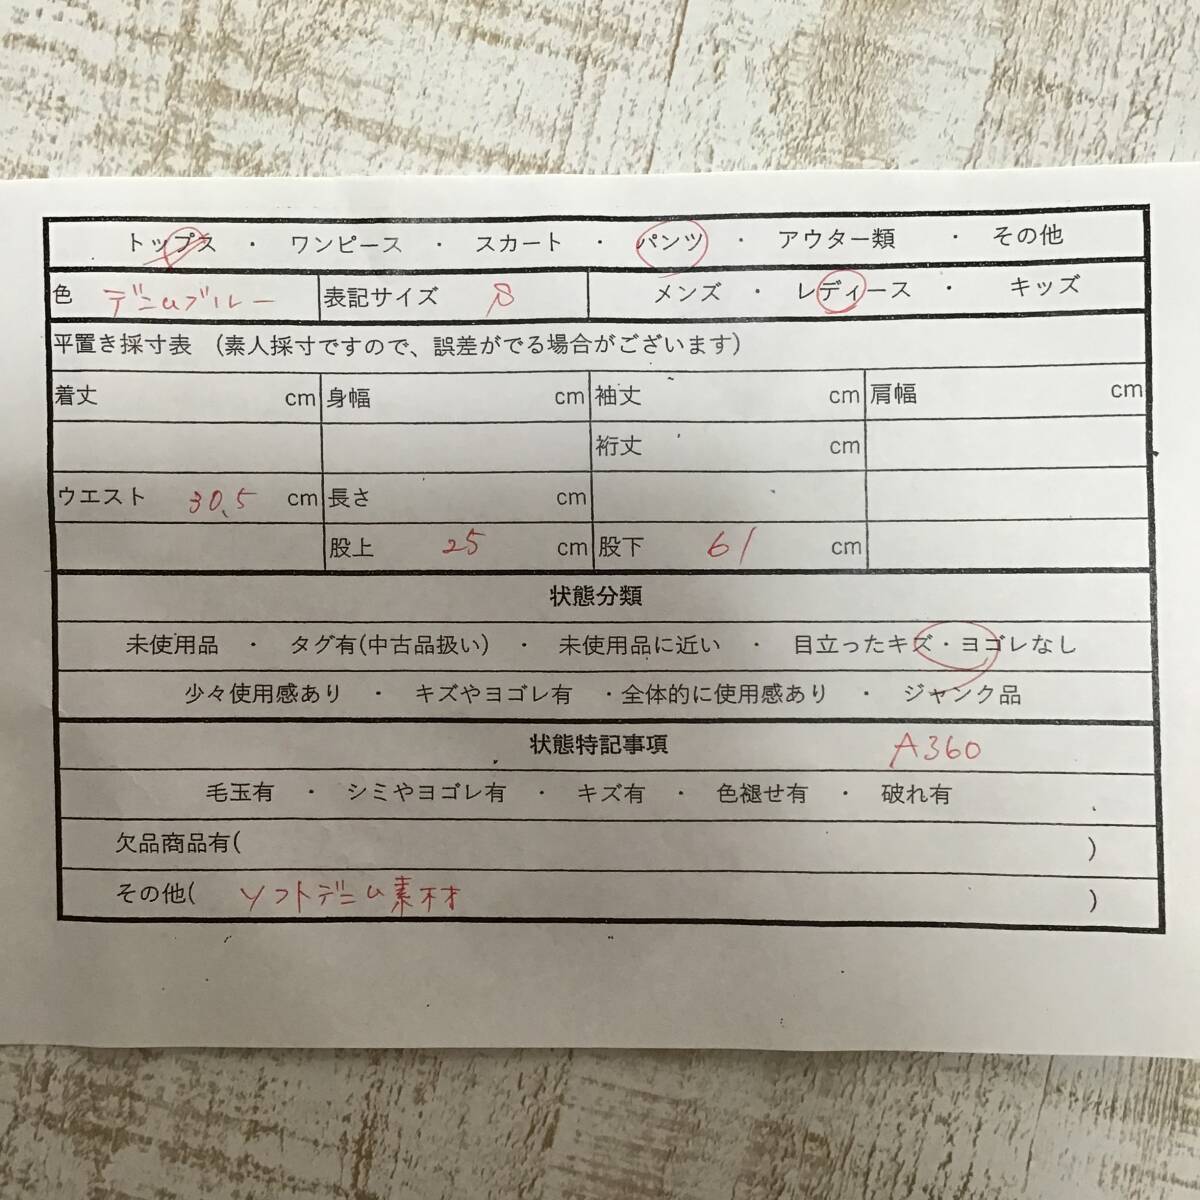 トップス ・ ワンピース ・ スカート ・ パンツ ・ アウター類 ・ その他
色 デニムブルー 表記サイズ S メンズ ・ レディース ・ キッズ
平置き採寸表 (素人採寸ですので、誤差がでる場合がございます)
着丈 cm 身幅 cm 袖丈 cm 肩幅 cm
裄丈 cm
ウエスト 30.5 cm 長さ cm
股上 25 cm 股下 61 cm
状態分類
未使用品 ・ タグ有(中古品扱い) ・ 未使用品に近い ・ 目立ったキズ・ヨゴレなし
少々使用感あり ・ キズやヨゴレ有 ・全体的に使用感あり ・ ジャンク品
状態特記事項 A360
毛玉有 ・ シミやヨゴレ有 ・ キズ有 ・ 色褪せ有 ・ 破れ有
欠品商品有( )
その他( ソフトデニム素材 )